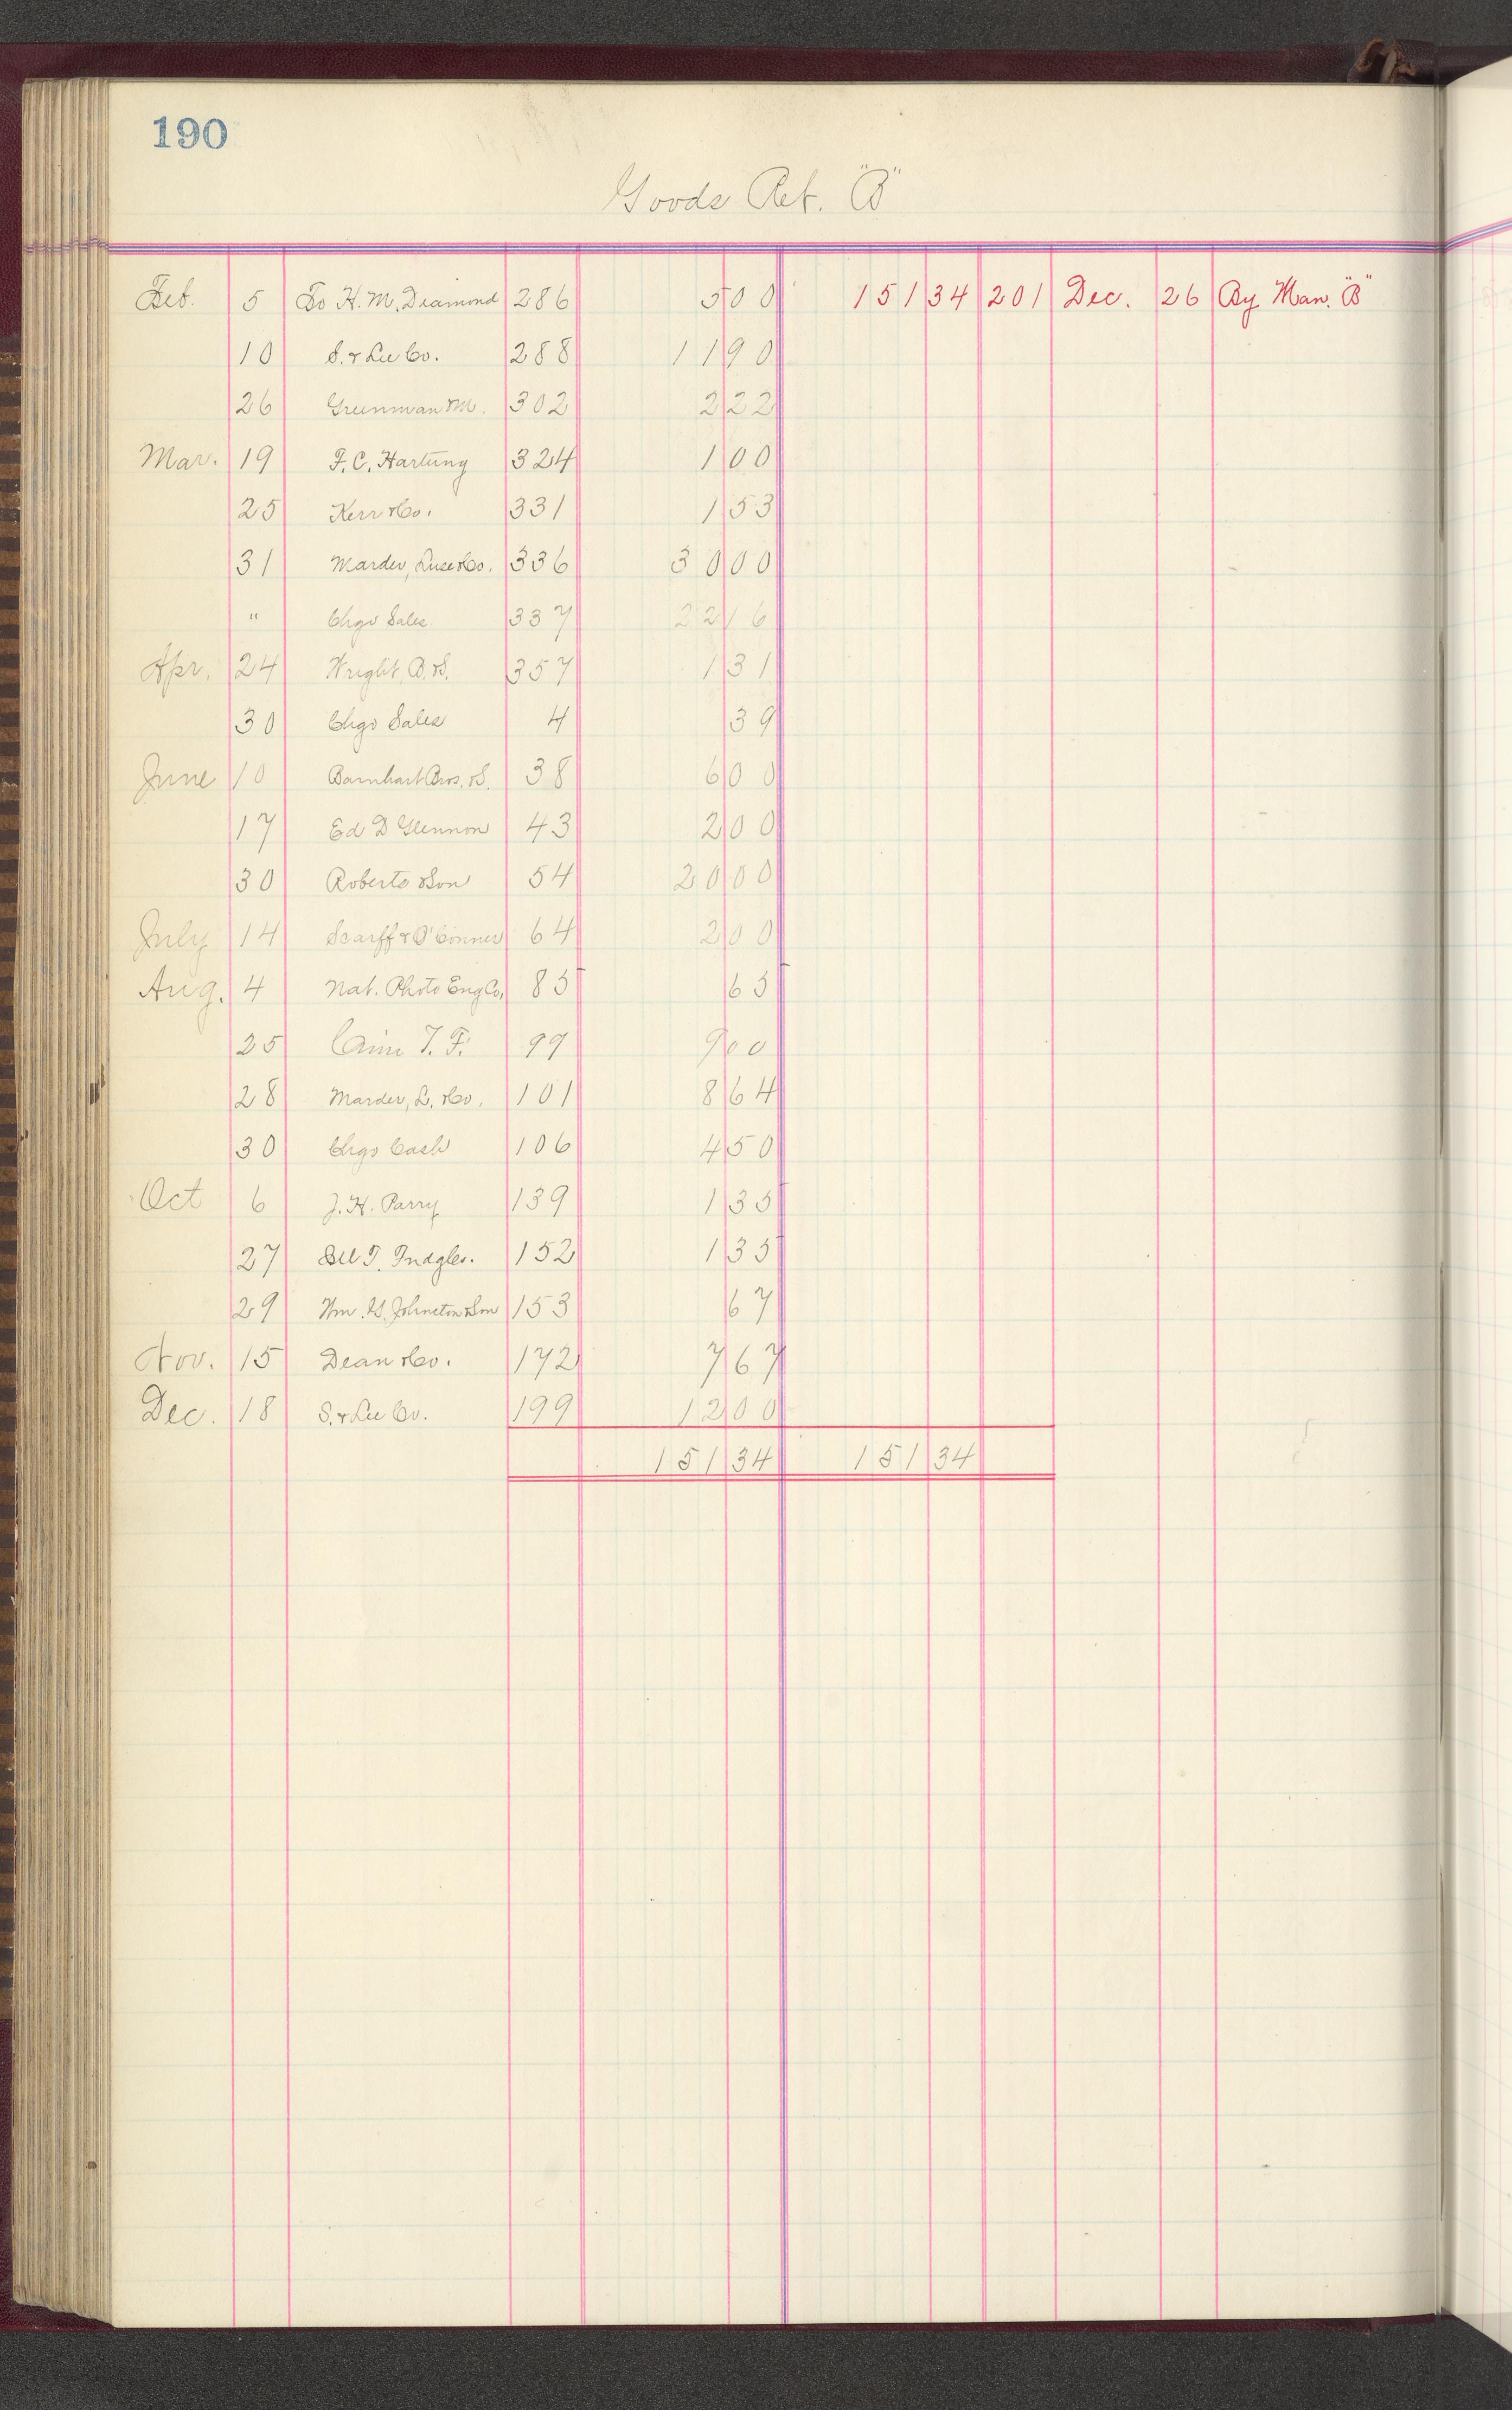 190
Goods Ret. "B"
Feb. 5 To H. M. Diamond 286 5 00 151 34 201 Dec. 26 By Man. "B"
10 S. & Lee Co. 288 11 90
26 Greenman & M. 302 2 22
Mar. 19 F. C. Hartung 324 1 00
25 Kerr & Co. 331 1 53
31 Marder, Luse & Co. 336 30 00
" Chgo Sales 337 22 16
Apr. 24 Wright, B. & S. 357 1 31
30 Chgo Sales 4 39
June 10 Barnhart Bros. & S. 38 6 00
17 Ed D Glennon 43 2 00
30 Roberts & Son 54 20 00
July 14 Scarff & O'Conner 64 2 00
Aug. 4 Nat. Photo Eng Co. 85 65
25 Cain T. F. 99 9 00
28 Marder, L. & Co. 101 8 64
30 Chgo Cash 106 4 50
Oct 6 J. H. Parry 139 1 35
27 T. 152 1 35
29 Wm. G. Johnston & Son 153 67
Nov. 15 Dean & Co. 172 7 67
Dec. 18 S. & Lee Co. 199 12 00
151 34 151 34